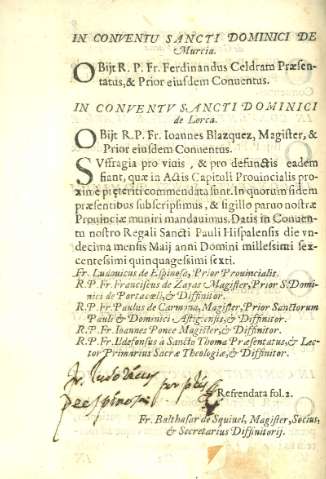 IN CONVENTU SANCTI DOMINICI DE
Murcia.
OBijt R. P. Fr. Ferdinandus Celdram Præsen-
tatus, & Prior eiusdem Conuentus.
IN CONVENTV SANCTI DOMINICI
de Lorca.
OBijt R.P. Fr. Ioannes Blazquez, Magister, &
Prior eiusdem Conuentus.
SVffragia pro viuis, & pro defunctis eadem
fiant, quæ in Actis Capituli Prouincialis proxi-
me præteriti commendata sunt. In quorum fidem
præsentibus subscripsimus, & sigillo paruo nostræ
Prouinciæ muniri mandauimus. Datis in Conuen-
tu nostro Regali Sancti Pauli Hispalensis die vn-
decima mensis Maij anni Domini millessimi sex-
centessimi quinquagessimi sexti.
Fr. Ludouicus de Espinosa, Prior Prouincialis.
R.P. Fr. Franciscus de Zayas Magister, Prior Sti Domi-
nici de Portacœli, & Diffinitor.
R.P. Fr. Paulus de Carmona, Magister, Prior Sanctorum
Pauli & Dominici Astigensis, & Diffinitor.
R.P. Fr. Ioannes Ponce Magister, & Diffinitor.
R.P. Fr. Ildefonsus à Sancto Thoma Præsentatus, & Lec-
tor Primarius Sacræ Theologiæ, & Diffinitor.
Fr. Ludovicus
de espinosa
Refrendata fol. 2.
Fr. Balthasar de Squiuel, Magister, Socius,
& Secretarius Diffinitorij.